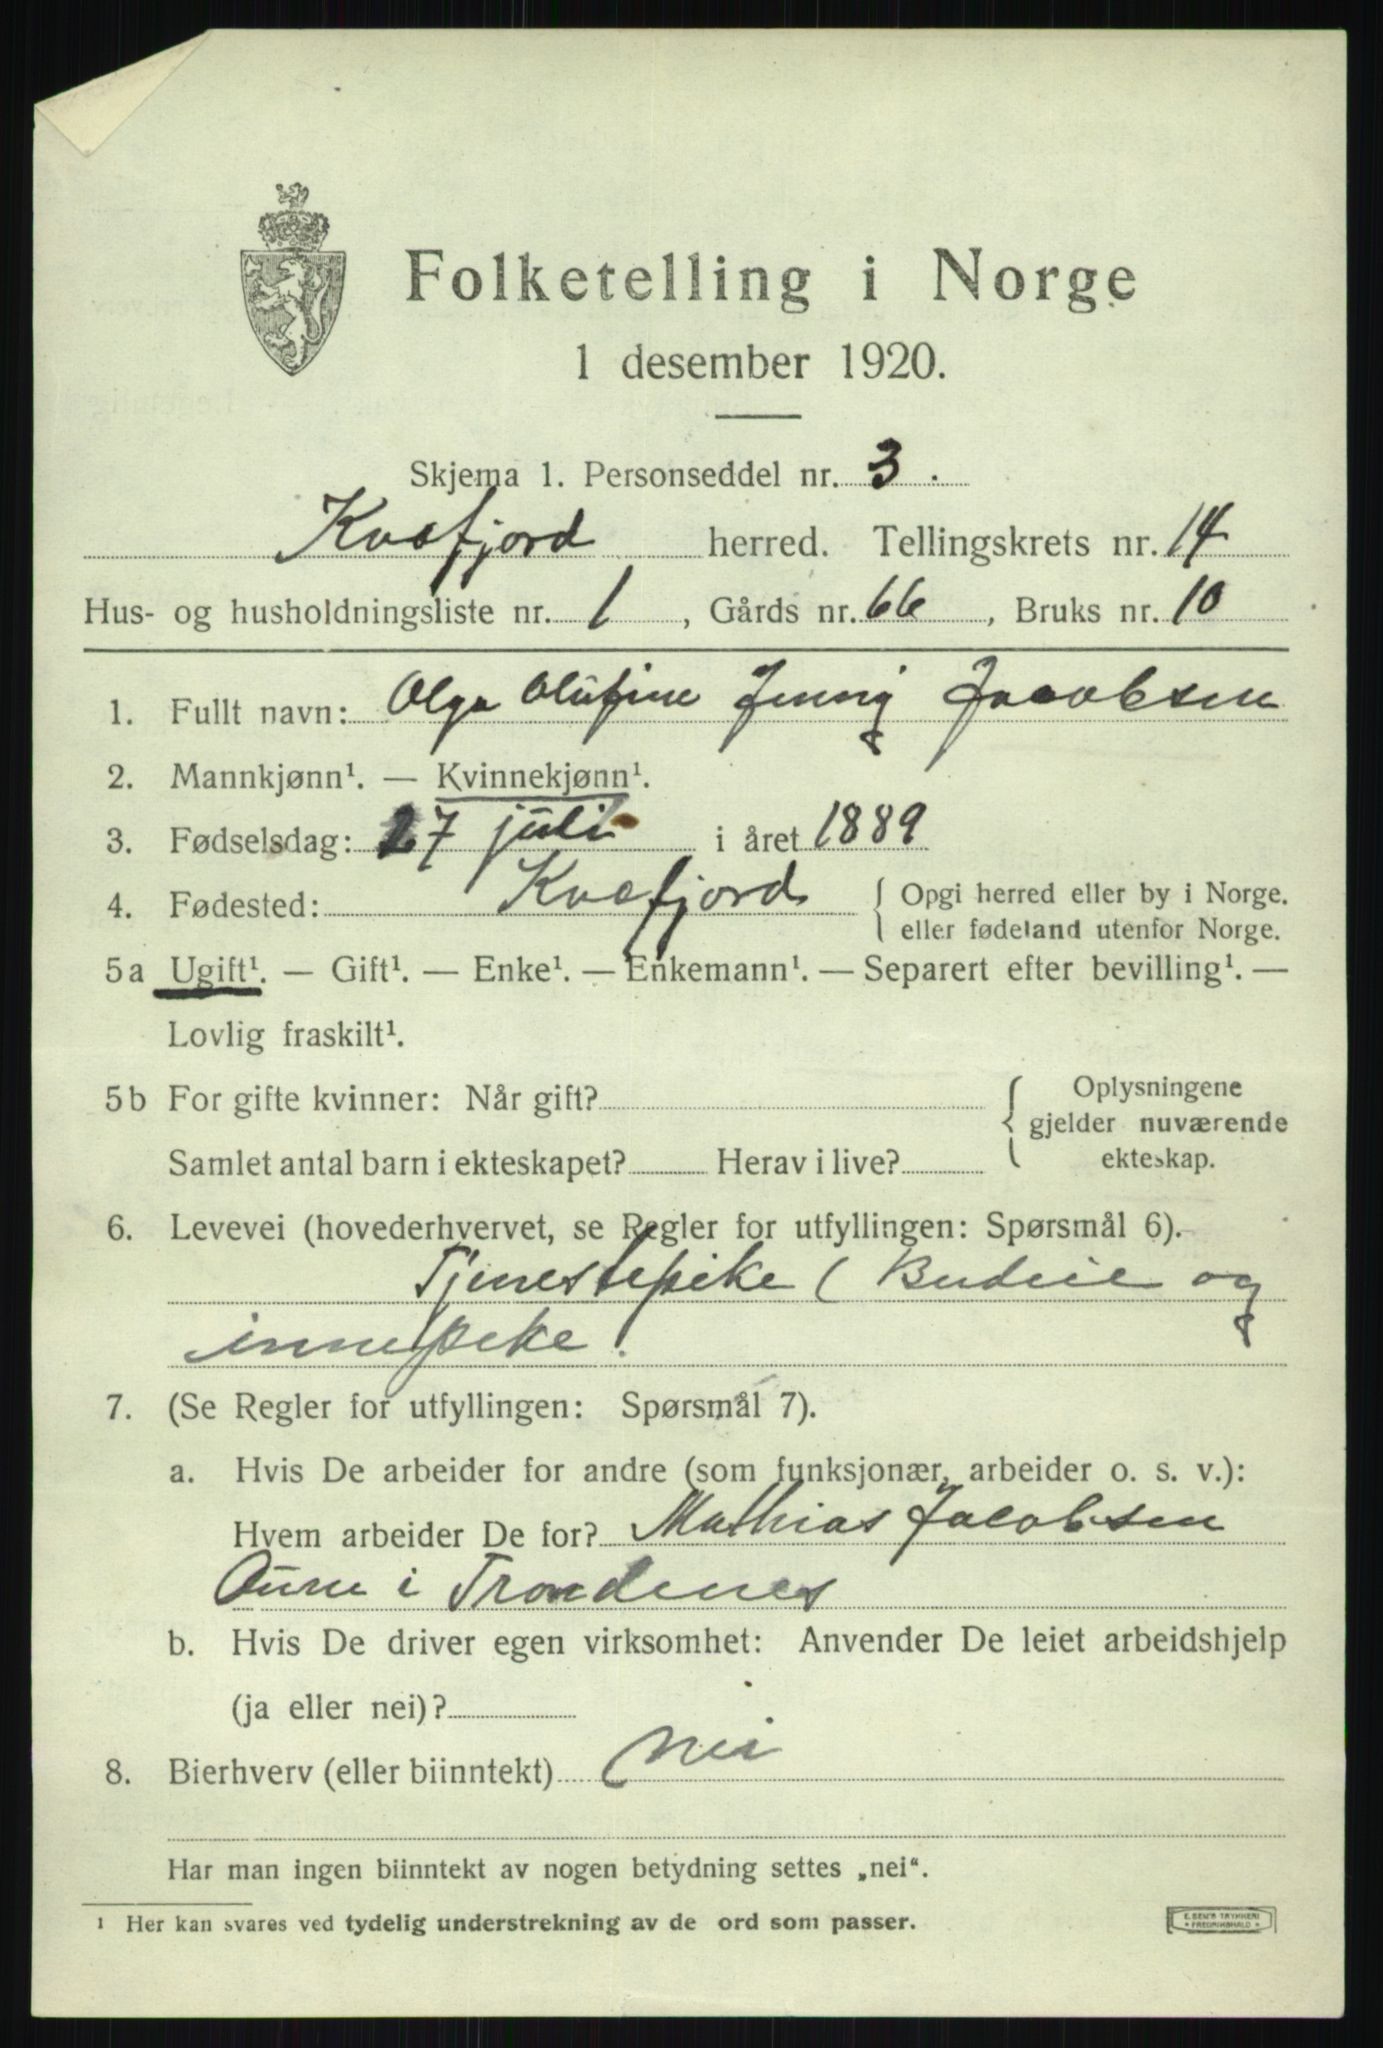 Folketelling i Norge
1 desember 1920.
Skjema 1. Personseddel nr. 3.
Kvæfjord herred. Tellingskrets nr. 14
Hus- og husholdningsliste nr. 1, Gårds nr. 66, Bruks nr. 10
1. Fullt navn: Olga Olufine Jenny Jacobsen
2. Mannkjønn¹. — Kvinnekjønn¹.
3. Fødselsdag: 27 juli i året 1889
4. Fødested: Kvæfjord { Opgi herred eller by i Norge.
eller fødeland utenfor Norge.
5a Ugift¹. — Gift¹. — Enke¹. — Enkemann¹. — Separert efter bevilling¹. —
Lovlig fraskilt¹.
5b For gifte kvinner: Når gift? { Oplysningene
gjelder nuværende
Samlet antal barn i ekteskapet? Herav i live? ekteskap.
6. Levevei (hovederhvervet, se Regler for utfyllingen: Spørsmål 6).
Tjenestepike (Budeie og
innepike.
7. (Se Regler for utfyllingen: Spørsmål 7).
a. Hvis De arbeider for andre (som funksjonær, arbeider o. s. v.):
Hvem arbeider De for? Mathias Jacobsen
Aune i Trondenes
b. Hvis De driver egen virksomhet: Anvender De leiet arbeidshjelp
(ja eller nei)?
8. Bierhverv (eller biinntekt) nei
Har man ingen biinntekt av nogen betydning settes „nei“.
¹ Her kan svares ved tydelig understrekning av de ord som passer.
E. SEM'S TRYKKERI
FREDRIKSHALD